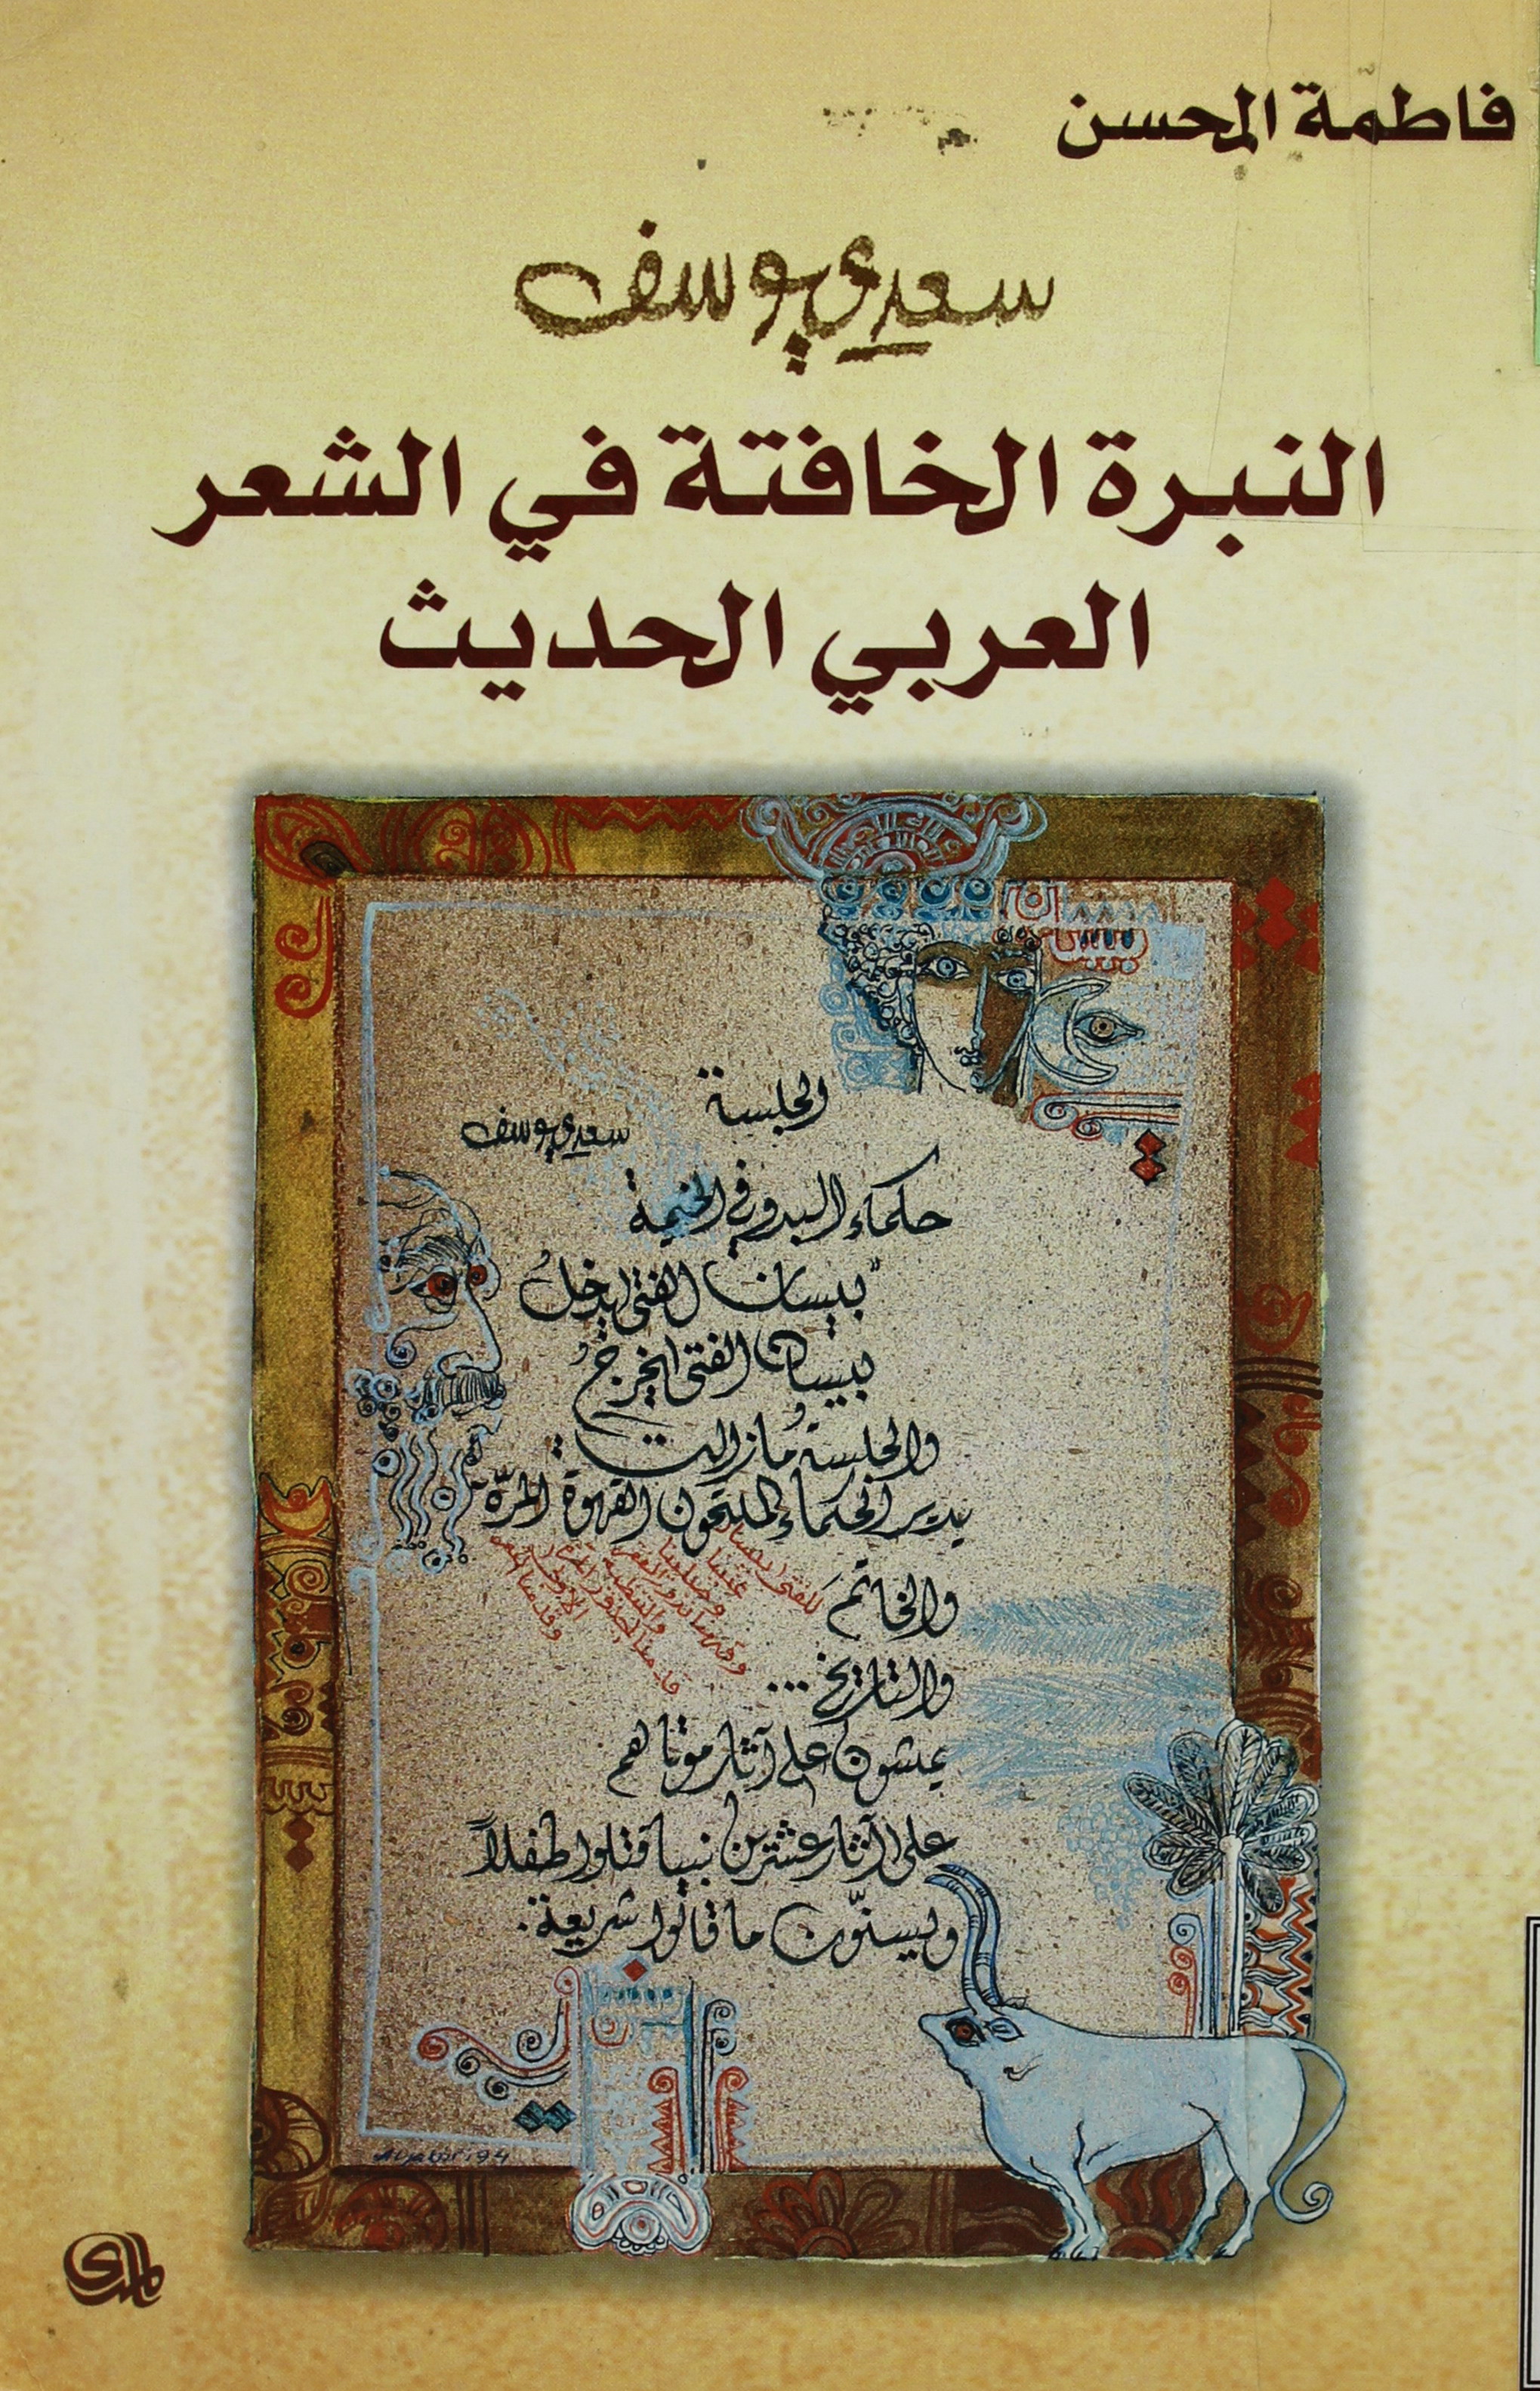 فاطمة المحسن
سعدي يوسف
النبرة الخافتة في الشعر
العربي الحديث
الجلسة
سعدي يوسف
حكماء البدو في الخيمة
"بيسان الفتى يدخلُ
بيسان الفتى يخرجُ"
والجلسةُ مازالت:
يدير الحكماء الملتحون القهوة المرّة
والخاتمَ
والتاريخ...
يمشون على آثار موتاهم
على آثار عشرين نبيا قتلوا طفلاً
ويسنّون ما قالوا شريعة.
المدى